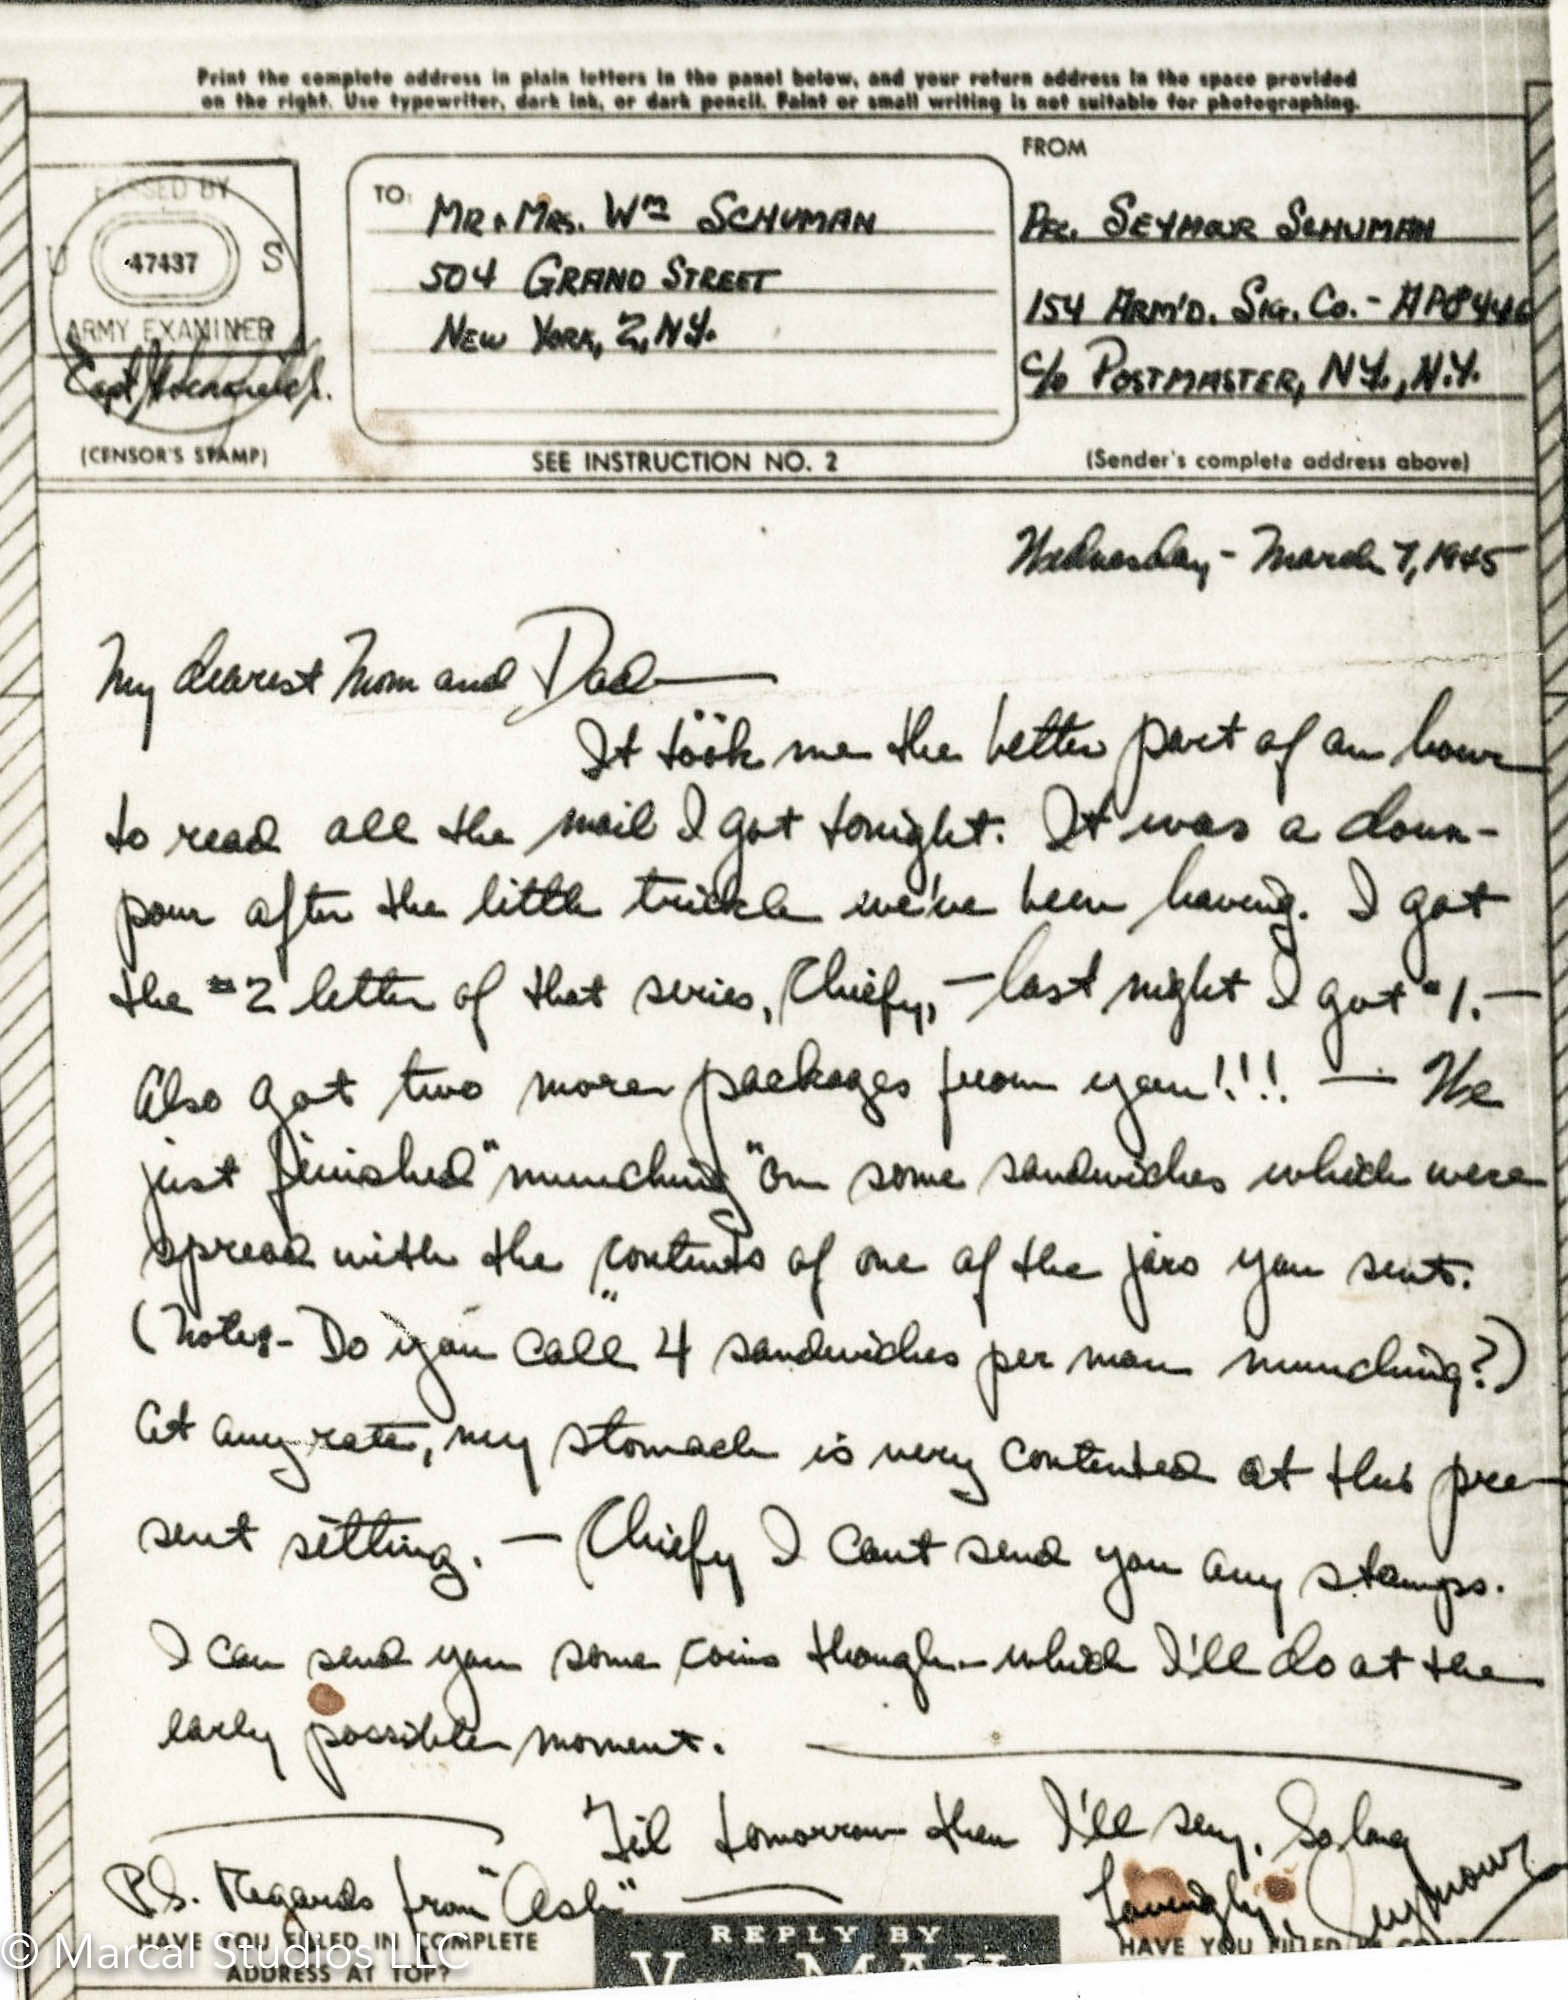 Print the complete address in plain letters in the panel below, and your return address in the space provided
on the right. Use typewriter, dark ink, or dark pencil. Faint or small writing is not suitable for photographing.
PASSED BY
U 47437 S
ARMY EXAMINER
Capt
(CENSOR'S STAMP)
TO:
MR & MRS. Wm SCHUMAN
504 GRAND STREET
NEW YORK, 2, N.Y.
SEE INSTRUCTION NO. 2
FROM
PFC. SEYMOUR SCHUMAN
154 ARM'D. SIG. CO. - APO 446
c/o POSTMASTER, N.Y., N.Y.
(Sender's complete address above)
Wednesday - March 7, 1945
My dearest Mom and Dad
It took me the better part of an hour
to read all the mail I got tonight. It was a down-
pour after the little trickle we've been having. I got
the #2 letter of that series, Chiefy, - last night I got #1. -
Also got two more packages from you!!! - We
just finished "munching" on some sandwiches which were
spread with the contents of one of the jars you sent.
(Note - Do you call 4 sandwiches per man munching?)
At any rate, my stomach is very contented at this pre-
sent sitting. - Chiefy I can't send you any stamps.
I can send you some coins though - which I'll do at the
early possible moment.
'Til tomorrow then I'll say, So long
Lovingly, Seymour
P.S. Regards from "Ash"
HAVE YOU FILLED IN COMPLETE
ADDRESS AT TOP?
REPLY BY
V... MAIL
HAVE YOU FILLED IN COMPLETE
© Marcal Studios LLC